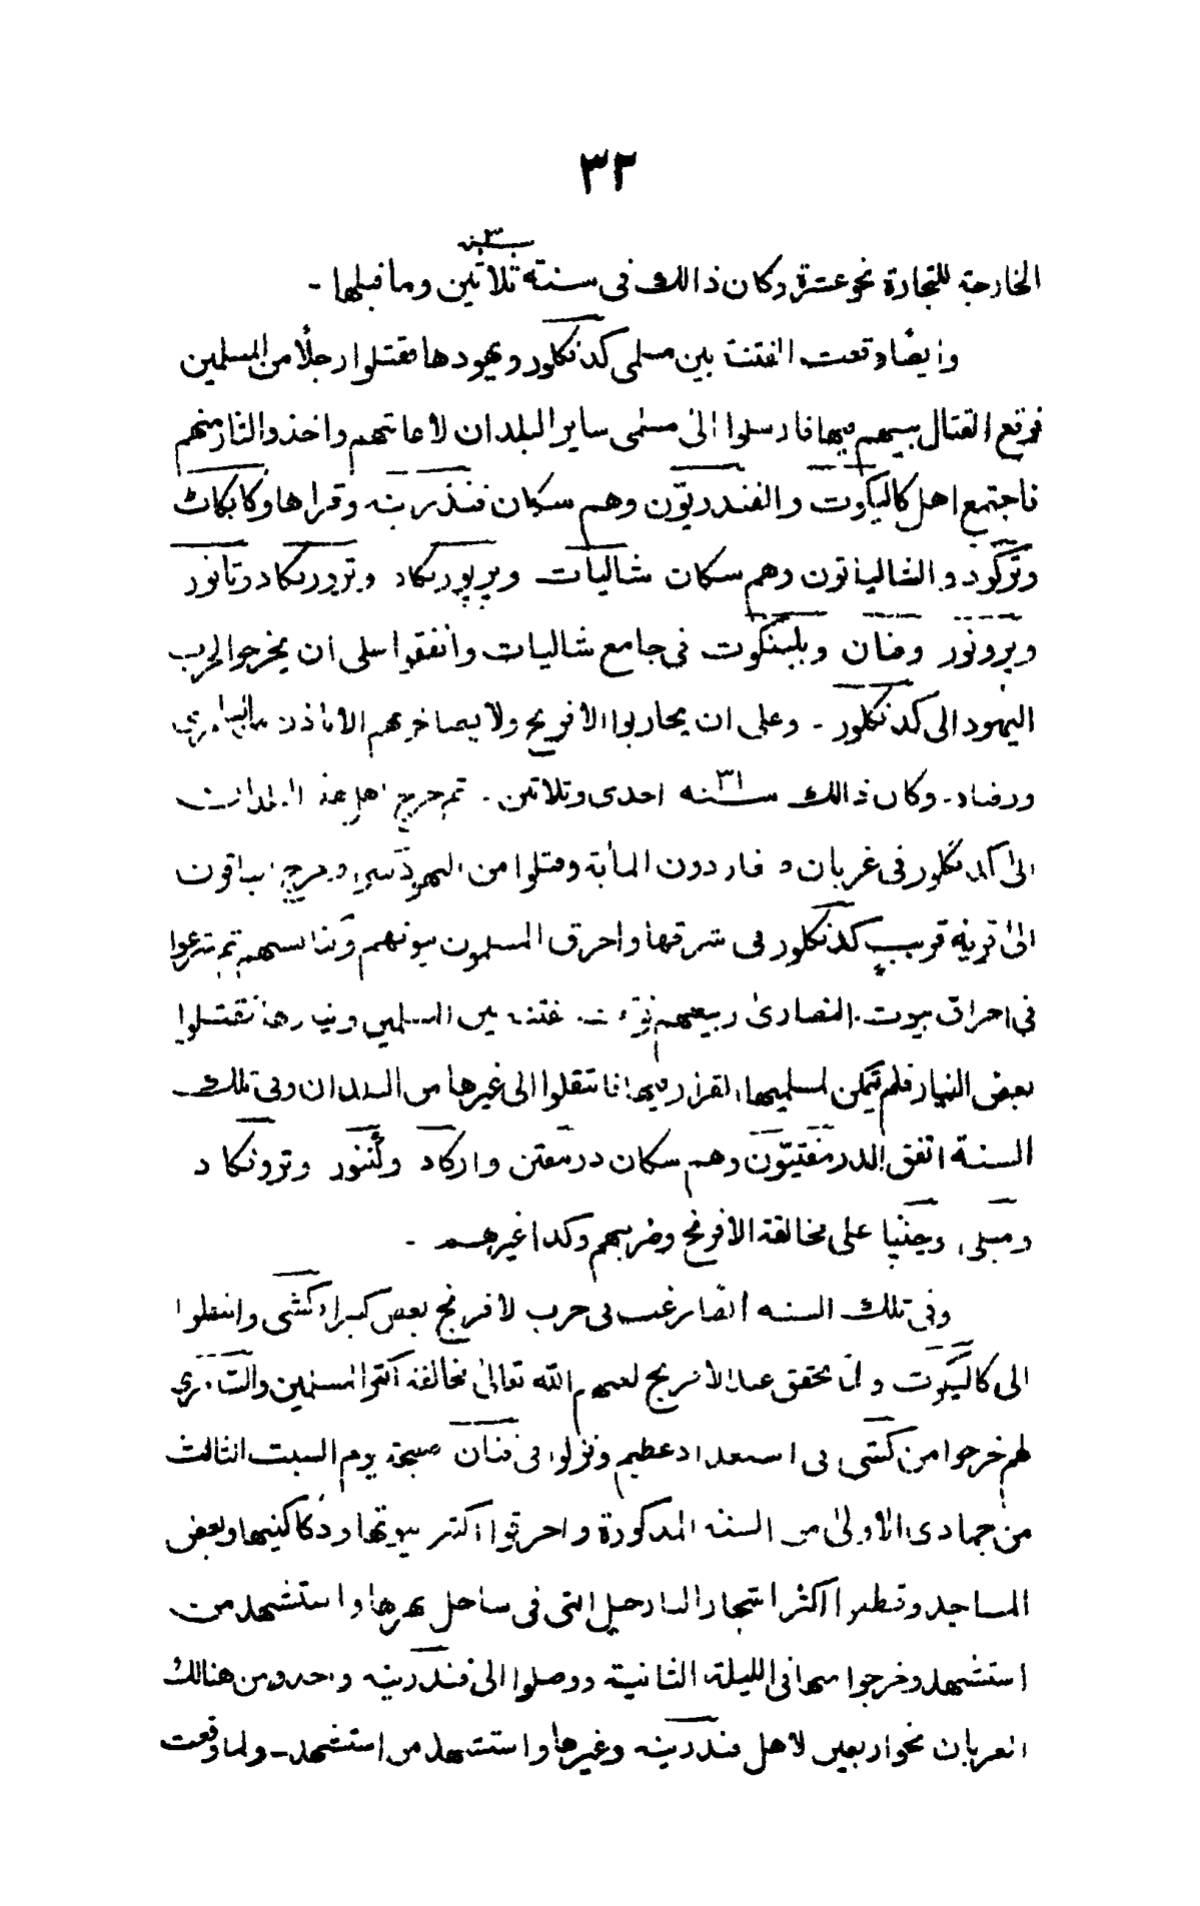 ٣٢
الخارجة للتجارة نحو عشرة وكان ذالك فى سنة ثلاثين وما قبلها -
وايضا وقعت الفتنة بين مسلمى كدنكلور ويهودها فقتلوا رجلا من المسلمين
فوقع القتال بينهم فيها فارسلوا الى مسلمى ساير البلدان لاعانتهم واخذ والثار منهم
فاجتمع اهل كاليكوت والفندريون وهم سكان فندرينه وقراها وكابكات
وتركود والشالياتون وهم سكان شاليات وبرپورنكاد وترورنكاد وتانور
وبرونور وفنان وبلينكوت فى جامع شاليات واتفقوا على ان يخرجوا لحرب
اليهود الى كدنكلور - وعلى ان يحاربوا الافرنج ولا يصالحوهم الا باذن السامرى
ورضاه - وكان ذالك سنه ٣١ احدى وثلاثين - ثم خرج اهل هذه البلدان
الى كدنكلور فى غربان و فار دون المأية وقتلوا من اليهود وخرج الباقون
الى قرية قريب كدنكلور فى شرقها واحرق المسلمون بيوتهم وكنائسهم ثم شرعوا
فى احراق بيوت النصارى وبيعهم فتنة بين المسلمين ونيارها فقتلوا
بعض النيار فلم يمكن لمسلميها القرار فيها فانتقلوا الى غيرها من البلدان وفى تلك
السنة اتفق الدرمفتيون وهم سكان درمفتن واركاد ولننور وترونكاد
ومبلى وجنپا على مخالفة الافرنج وضربهم وكدا غيرهم -
وفى تلك السنه ايضا رغب فى حرب لافرنج بعض كبراء كشى وانتقلوا
الى كاليكوت ولما تحقق عند الافرنج لعنهم الله تعالى مخالفة اكثر المسلمين والسامرى
لهم خرجوا من كشى فى استعداد عظيم ونزلوا فى فنان صبيحة يوم السبت الثالث
من جمادى الاولى من السنه المدكورة واحرقوا اكثر بيوتها ودكاكينها وبعض
المساجد وقطعوا اكثر اشجار النارجيل التى فى ساحل بحرها واستشهد من
استشهد وخرجوا منها فى الليلة الثانية ووصلوا الى فندرينه واخدو من هنالك
الغربان نحو اربعين لاهل فندرينه وغيرها واستشهد من استشهد - ولما وقعت